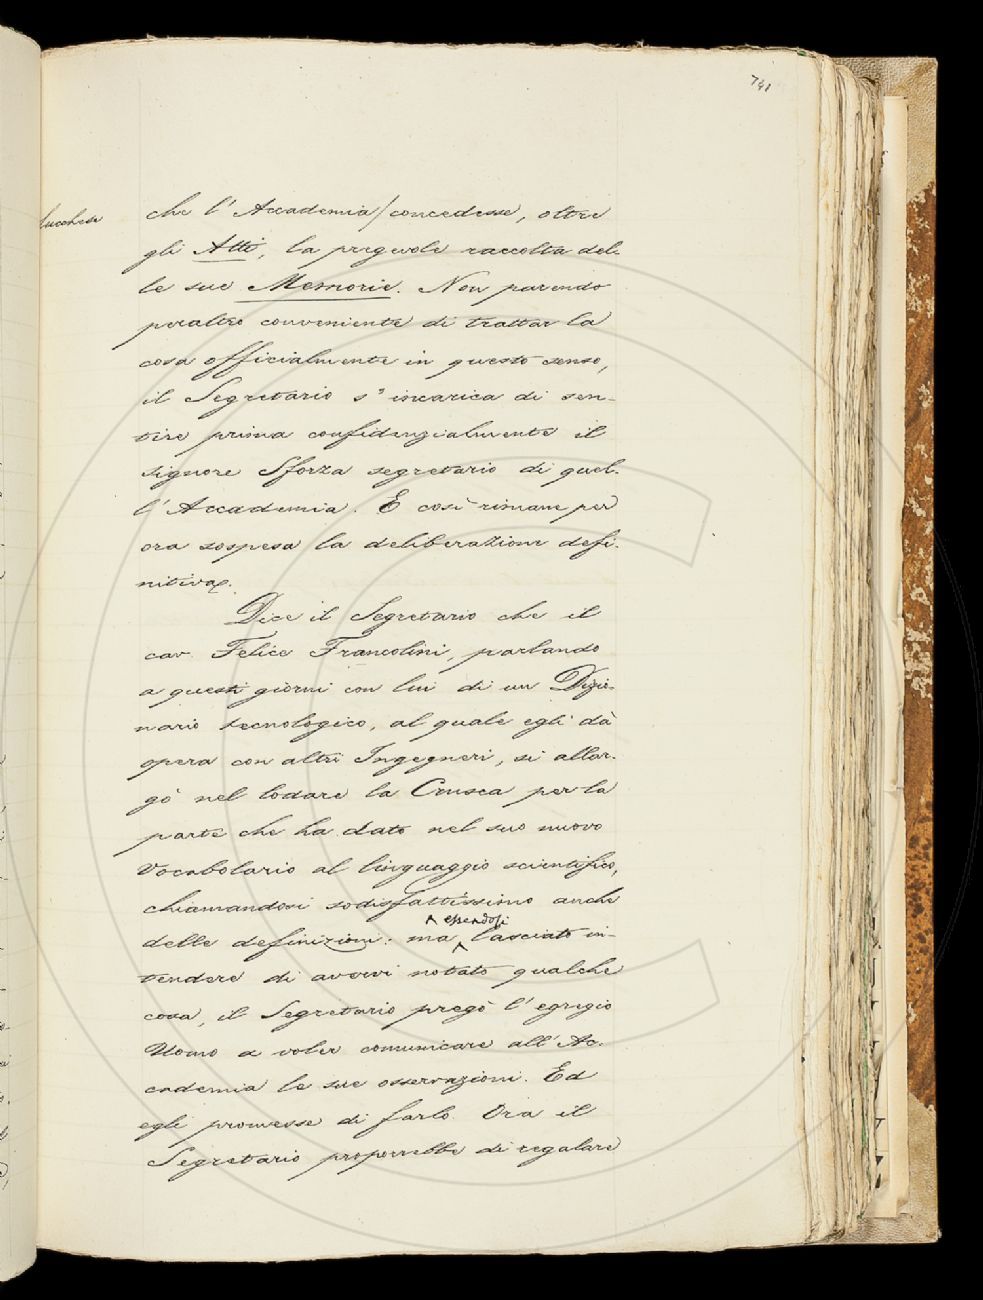 741
Lucchese
che l'Accademia/concedesse, oltre
gli Atti, la pregevole raccolta del-
le sue Memorie. Non parendo
peraltro conveniente di trattar la
cosa officialmente in questo senso,
il Segretario s'incarica di sen-
tire prima confidenzialmente il
signore Sforza segretario di quel-
l'Accademia. E così rimane per
ora sospesa la deliberazione defi-
nitiva.
Dice il Segretario che il
cav. Felice Francolini, parlando
a questi giorni con lui di un Dizio-
nario tecnologico, al quale egli dà
opera con altri Ingegneri, si allar-
gò nel lodare la Crusca per la
parte che ha dato nel suo nuovo
Vocabolario al linguaggio scientifico,
chiamandosi sodisfattissimo anche
essendosi
delle definizioni: ma lasciato in-
tendere di avervi notato qualche
cosa, il Segretario pregò l'egregio
Uomo a voler comunicare all'Ac-
cademia le sue osservazioni. Ed
egli promesse di farlo. Ora il
Segretario proporrebbe di regalare